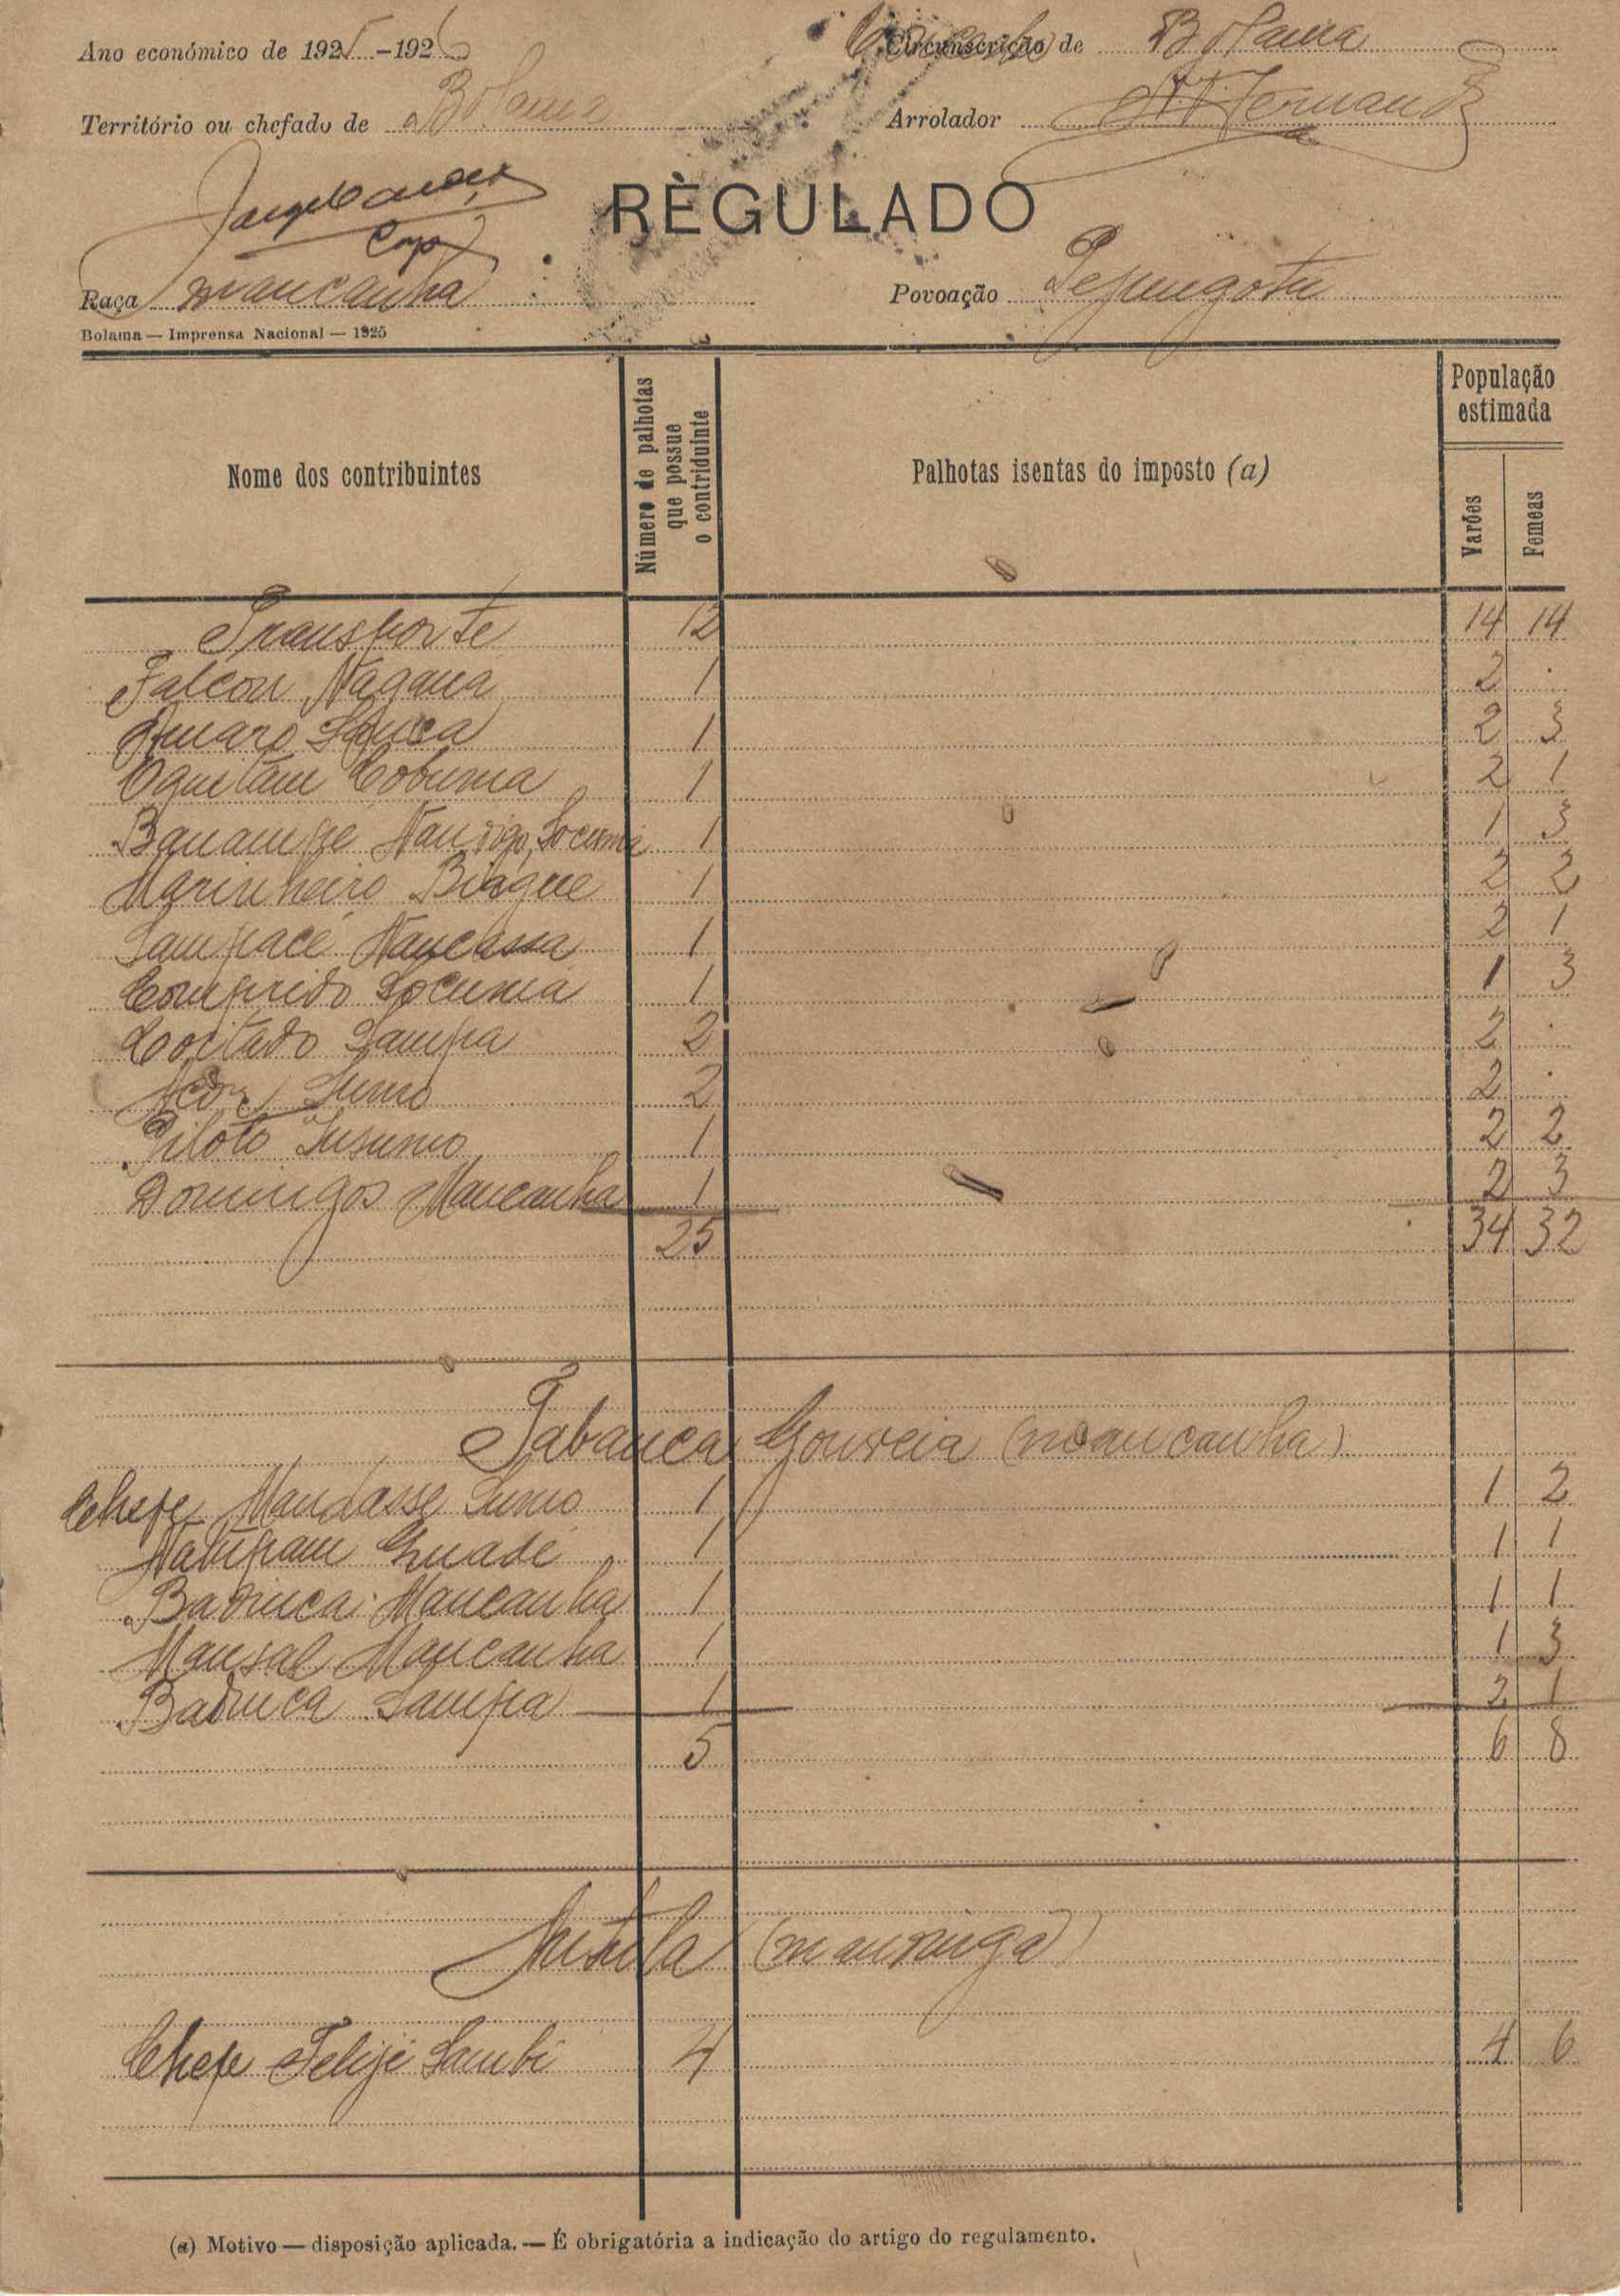 Ano económico de 1925-1926
Concelho de Bolama
Território ou chefado de Bolama
Arrolador Fernandes
RÈGULADO
Raça mancanha
Povoação
Bolama — Imprensa Nacional — 1925
Nome dos contribuintes
Número de palhotas que possue o contriduinte
Palhotas isentas do imposto (a)
População estimada
Varões
Femeas
Transporte 12 14 14
Falcon Nagana 1 2 .
Amaro 1 2 3
Cobuma 1 2 1
Socuma 1 1 3
Marinheiro Biague 1 2 2
Sampace Nancassa 1 2 1
Comprido Socuma 1 1 3
Coitado Sampa 2 2 .
Sumo 2 2 .
Piloto 1 2 2
Domingos Mancanha 1 2 3
25 34 32
Tabanca Gouveia (mancanha)
Chefe Mandasse Sumo 1 1 2
1 1 1
Badinca Mancanha 1 1 1
Mansal Mancanha 1 1 3
Badinca Sampa 1 2 1
5 6 8
(mandinga)
Chefe Sambú 4 4 6
(a) Motivo — disposição aplicada. — É obrigatória a indicação do artigo do regulamento.